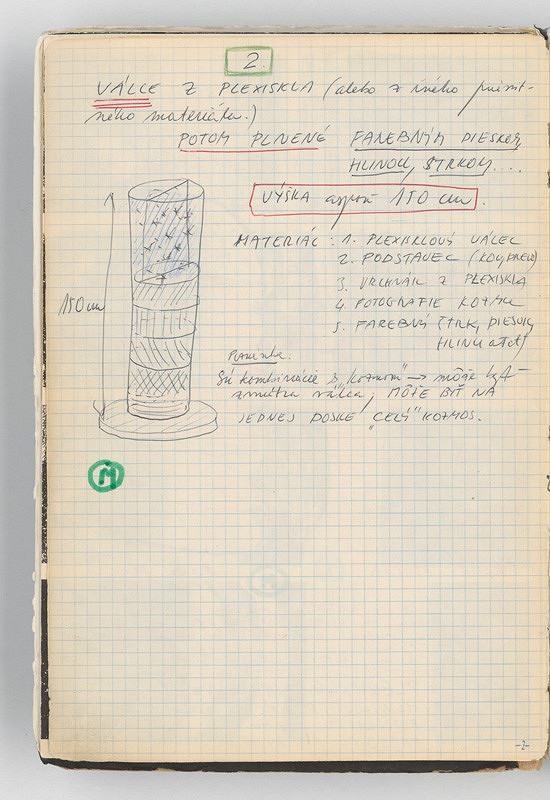 2.
VÁLCE Z PLEXISKLA (alebo z iného priesvit-
ného materiálu.)
POTOM PLNENÉ FAREBNÝM PIESKOM,
HLINOU, ŠTRKOM...
VÝŠKA aspoň 150 cm.
MATERIÁL: 1. PLEXISKLOVÝ VÁLEC
2. PODSTAVEC
3. VRCHNÁK Z PLEXISKLA
4. FOTOGRAFIE KOZMU
5. FAREBNÝ ŠTRK, PIESOK,
HLINU atď)
150 cm
Poznámka.
Sú kombinácie s "kozmom" → môže byť
zvnútra válca, MÔŽE BYŤ NA
JEDNEJ DOSKE "CELÝ" KOZMOS.
M
-2-